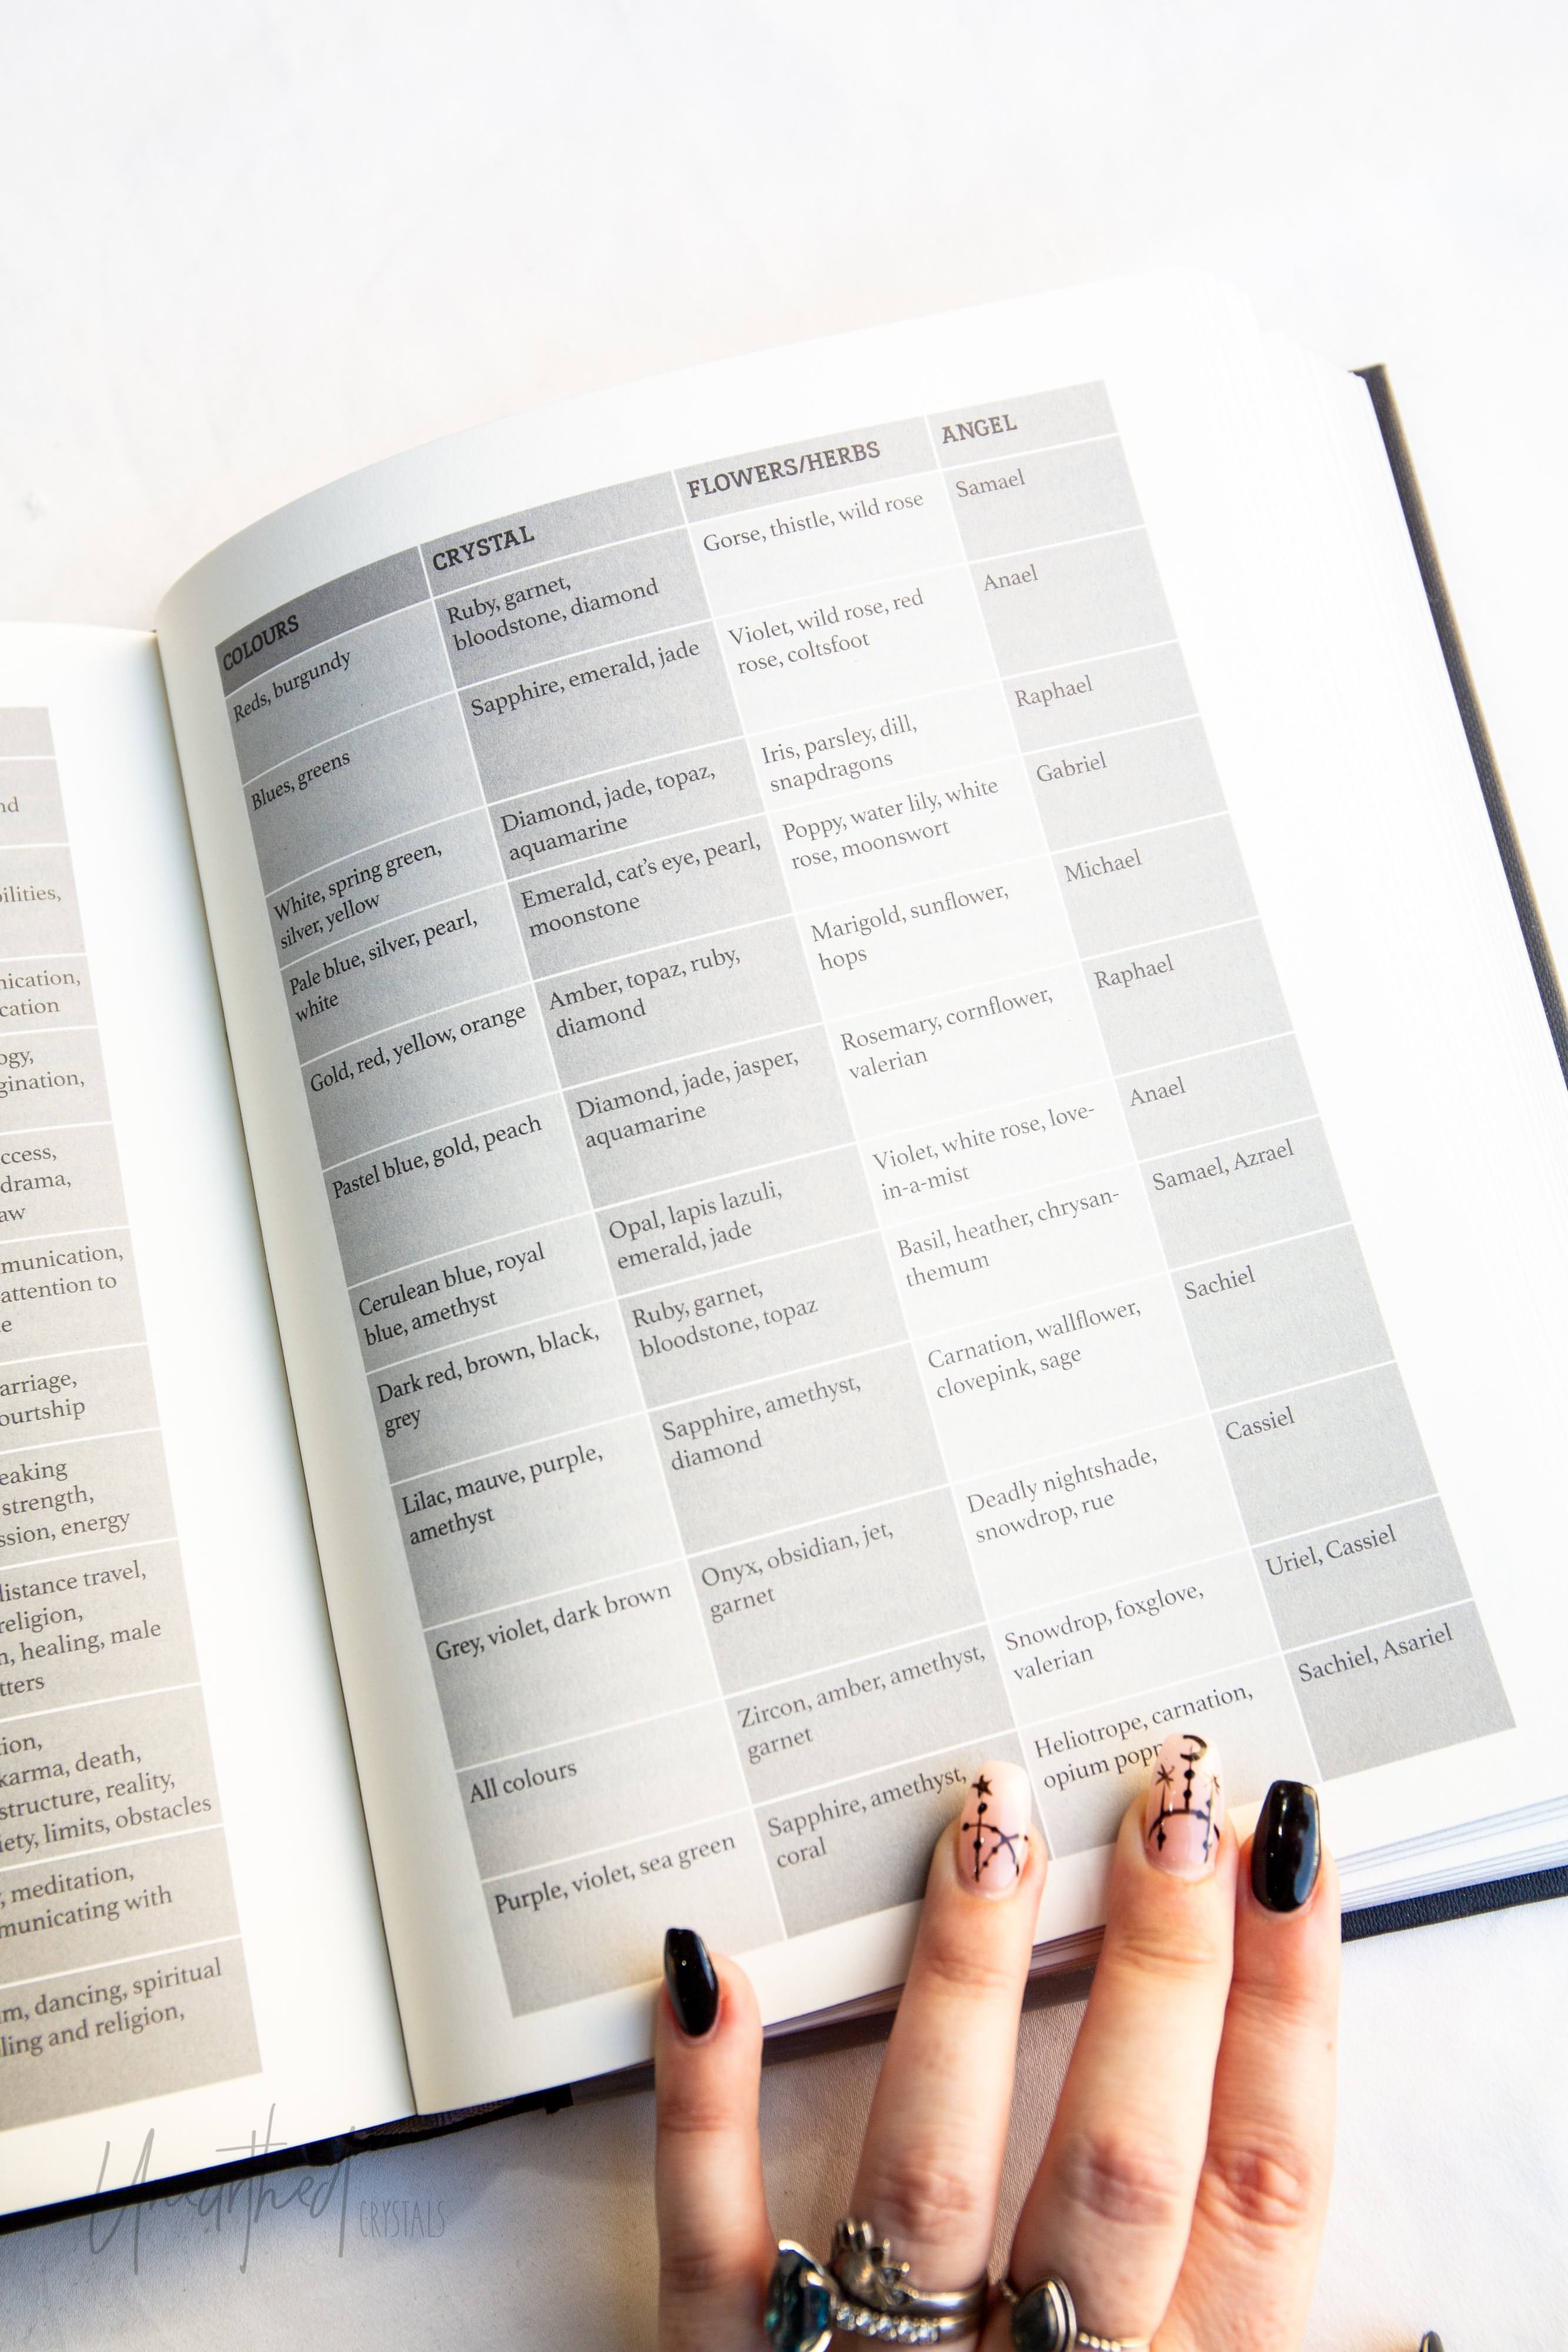 nd
ilities,
nication,
cation
ogy,
gination,
ccess,
drama,
aw
munication,
attention to
e
arriage,
ourtship
eaking
strength,
ssion, energy
listance travel,
religion,
n, healing, male
tters
ion,
karma, death,
structure, reality,
iety, limits, obstacles
, meditation,
municating with
m, dancing, spiritual
ling and religion,
COLOURS
CRYSTAL
FLOWERS/HERBS
ANGEL
Reds, burgundy
Ruby, garnet,
bloodstone, diamond
Gorse, thistle, wild rose
Samael
Blues, greens
Sapphire, emerald, jade
Violet, wild rose, red
rose, coltsfoot
Anael
White, spring green,
silver, yellow
Diamond, jade, topaz,
aquamarine
Iris, parsley, dill,
snapdragons
Raphael
Pale blue, silver, pearl,
white
Emerald, cat's eye, pearl,
moonstone
Poppy, water lily, white
rose, moonswort
Gabriel
Gold, red, yellow, orange
Amber, topaz, ruby,
diamond
Marigold, sunflower,
hops
Michael
Pastel blue, gold, peach
Diamond, jade, jasper,
aquamarine
Rosemary, cornflower,
valerian
Raphael
Cerulean blue, royal
blue, amethyst
Opal, lapis lazuli,
emerald, jade
Violet, white rose, love-
in-a-mist
Anael
Dark red, brown, black,
grey
Ruby, garnet,
bloodstone, topaz
Basil, heather, chrysan-
themum
Samael, Azrael
Lilac, mauve, purple,
amethyst
Sapphire, amethyst,
diamond
Carnation, wallflower,
clovepink, sage
Sachiel
Grey, violet, dark brown
Onyx, obsidian, jet,
garnet
Deadly nightshade,
snowdrop, rue
Cassiel
All colours
Zircon, amber, amethyst,
garnet
Snowdrop, foxglove,
valerian
Uriel, Cassiel
Purple, violet, sea green
Sapphire, amethyst,
coral
Heliotrope, carnation,
opium popp
Sachiel, Asariel
Unearthed CRYSTALS